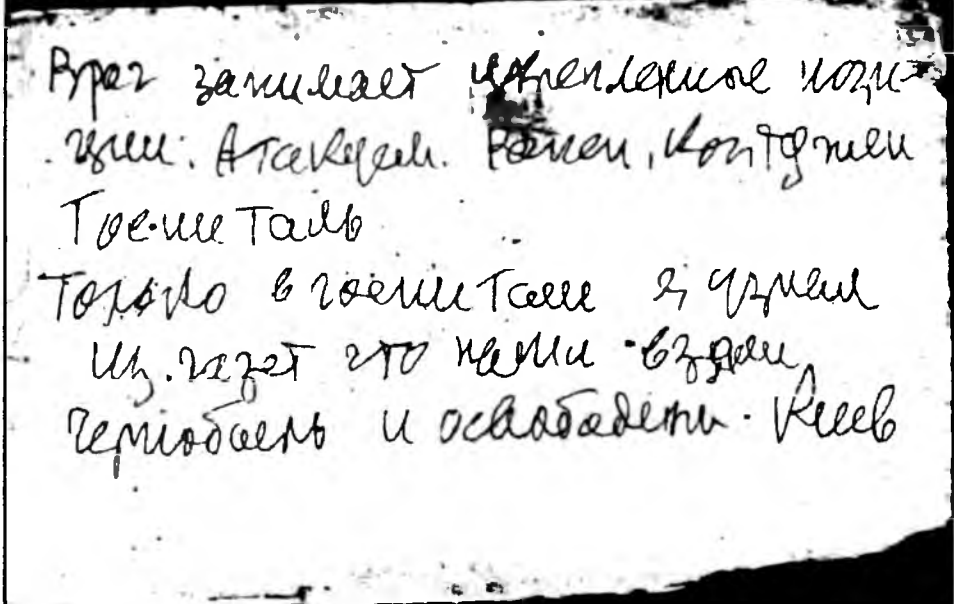 Враг занимает укрепленные пози-
ции. Атакуем. Ранен, контужен
Госпиталь
Только в госпитале я узнал
из газет что нами взяли
Чернобыль и освобожден Киев